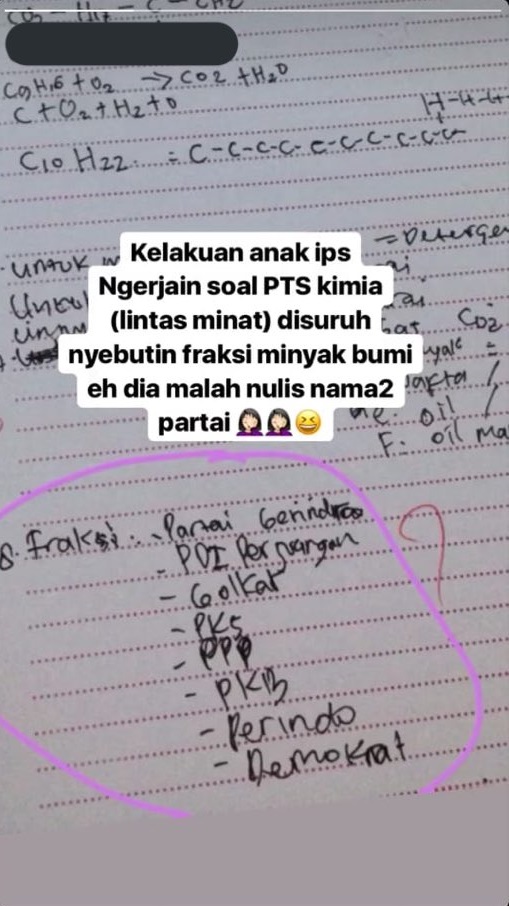 CO2 - H17 - C - CH2
C9H16 + O2 → CO2 + H2O
C + O2 + H2 + O
H-H-H
C10 H22 = C-C-C-C-C-C-C-C-C-C
Kelakuan anak ips
Ngerjain soal PTS kimia
(lintas minat) disuruh
nyebutin fraksi minyak bumi
eh dia malah nulis nama2
partai 🤦🏻‍♀️🤦🏻‍♀️😆
untuk
CO2
oil
F: oil
8. Fraksi: - Partai Gerindra
- PDI Perjuangan
- Golkar
- PKS
- PPP
- PKB
- Perindo
- Demokrat